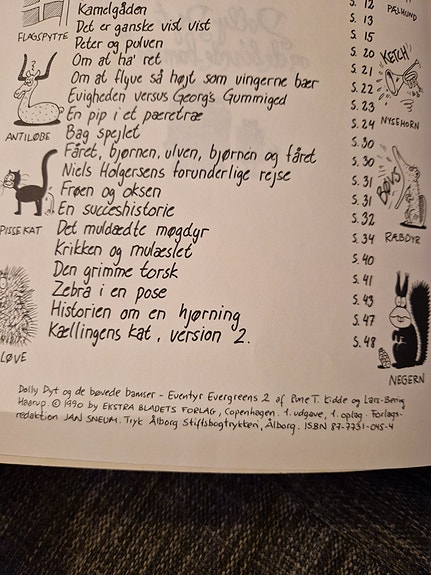 Kamelgården S. 12
Det er ganske vist vist S. 13
Peter og pulven S. 15
Om at ha' ret S. 20
Om at flyve så højt som vingerne bær S. 21
Evigheden versus Georg's Gummiged S. 22
En pip i et pæretræ S. 23
Bag spejlet S. 24
Fåret, bjørnen, ulven, bjørnen og fåret S. 30
Niels Holgersens forunderlige rejse S. 30
Frøen og oksen S. 31
En succeshistorie S. 31
Det muldædte møgdyr S. 32
Krikken og mulæslet S. 34
Den grimme torsk S. 40
Zebra i en pose S. 41
Historien om en hjørning S. 43
Kællingens kat, version 2. S. 47
S. 48
FLAGSPYTTE
ANTILØBE
PISSEKAT
LØVE
PÆLHUND
KETCH
NYSEHORN
BØVS
RÆBDYR
NEGERN
Dolly Dyt og de bøvede bamser - Eventyr Evergreens 2 af Rune T. Kidde og Lars-Bering
Haarup. © 1990 by EKSTRA BLADETS FORLAG, Copenhagen. 1. udgave, 1. oplag. Forlags-
redaktion JAN SNEUM. Tryk Ålborg Stiftsbogtrykkeri, Ålborg. ISBN 87-7731-045-4